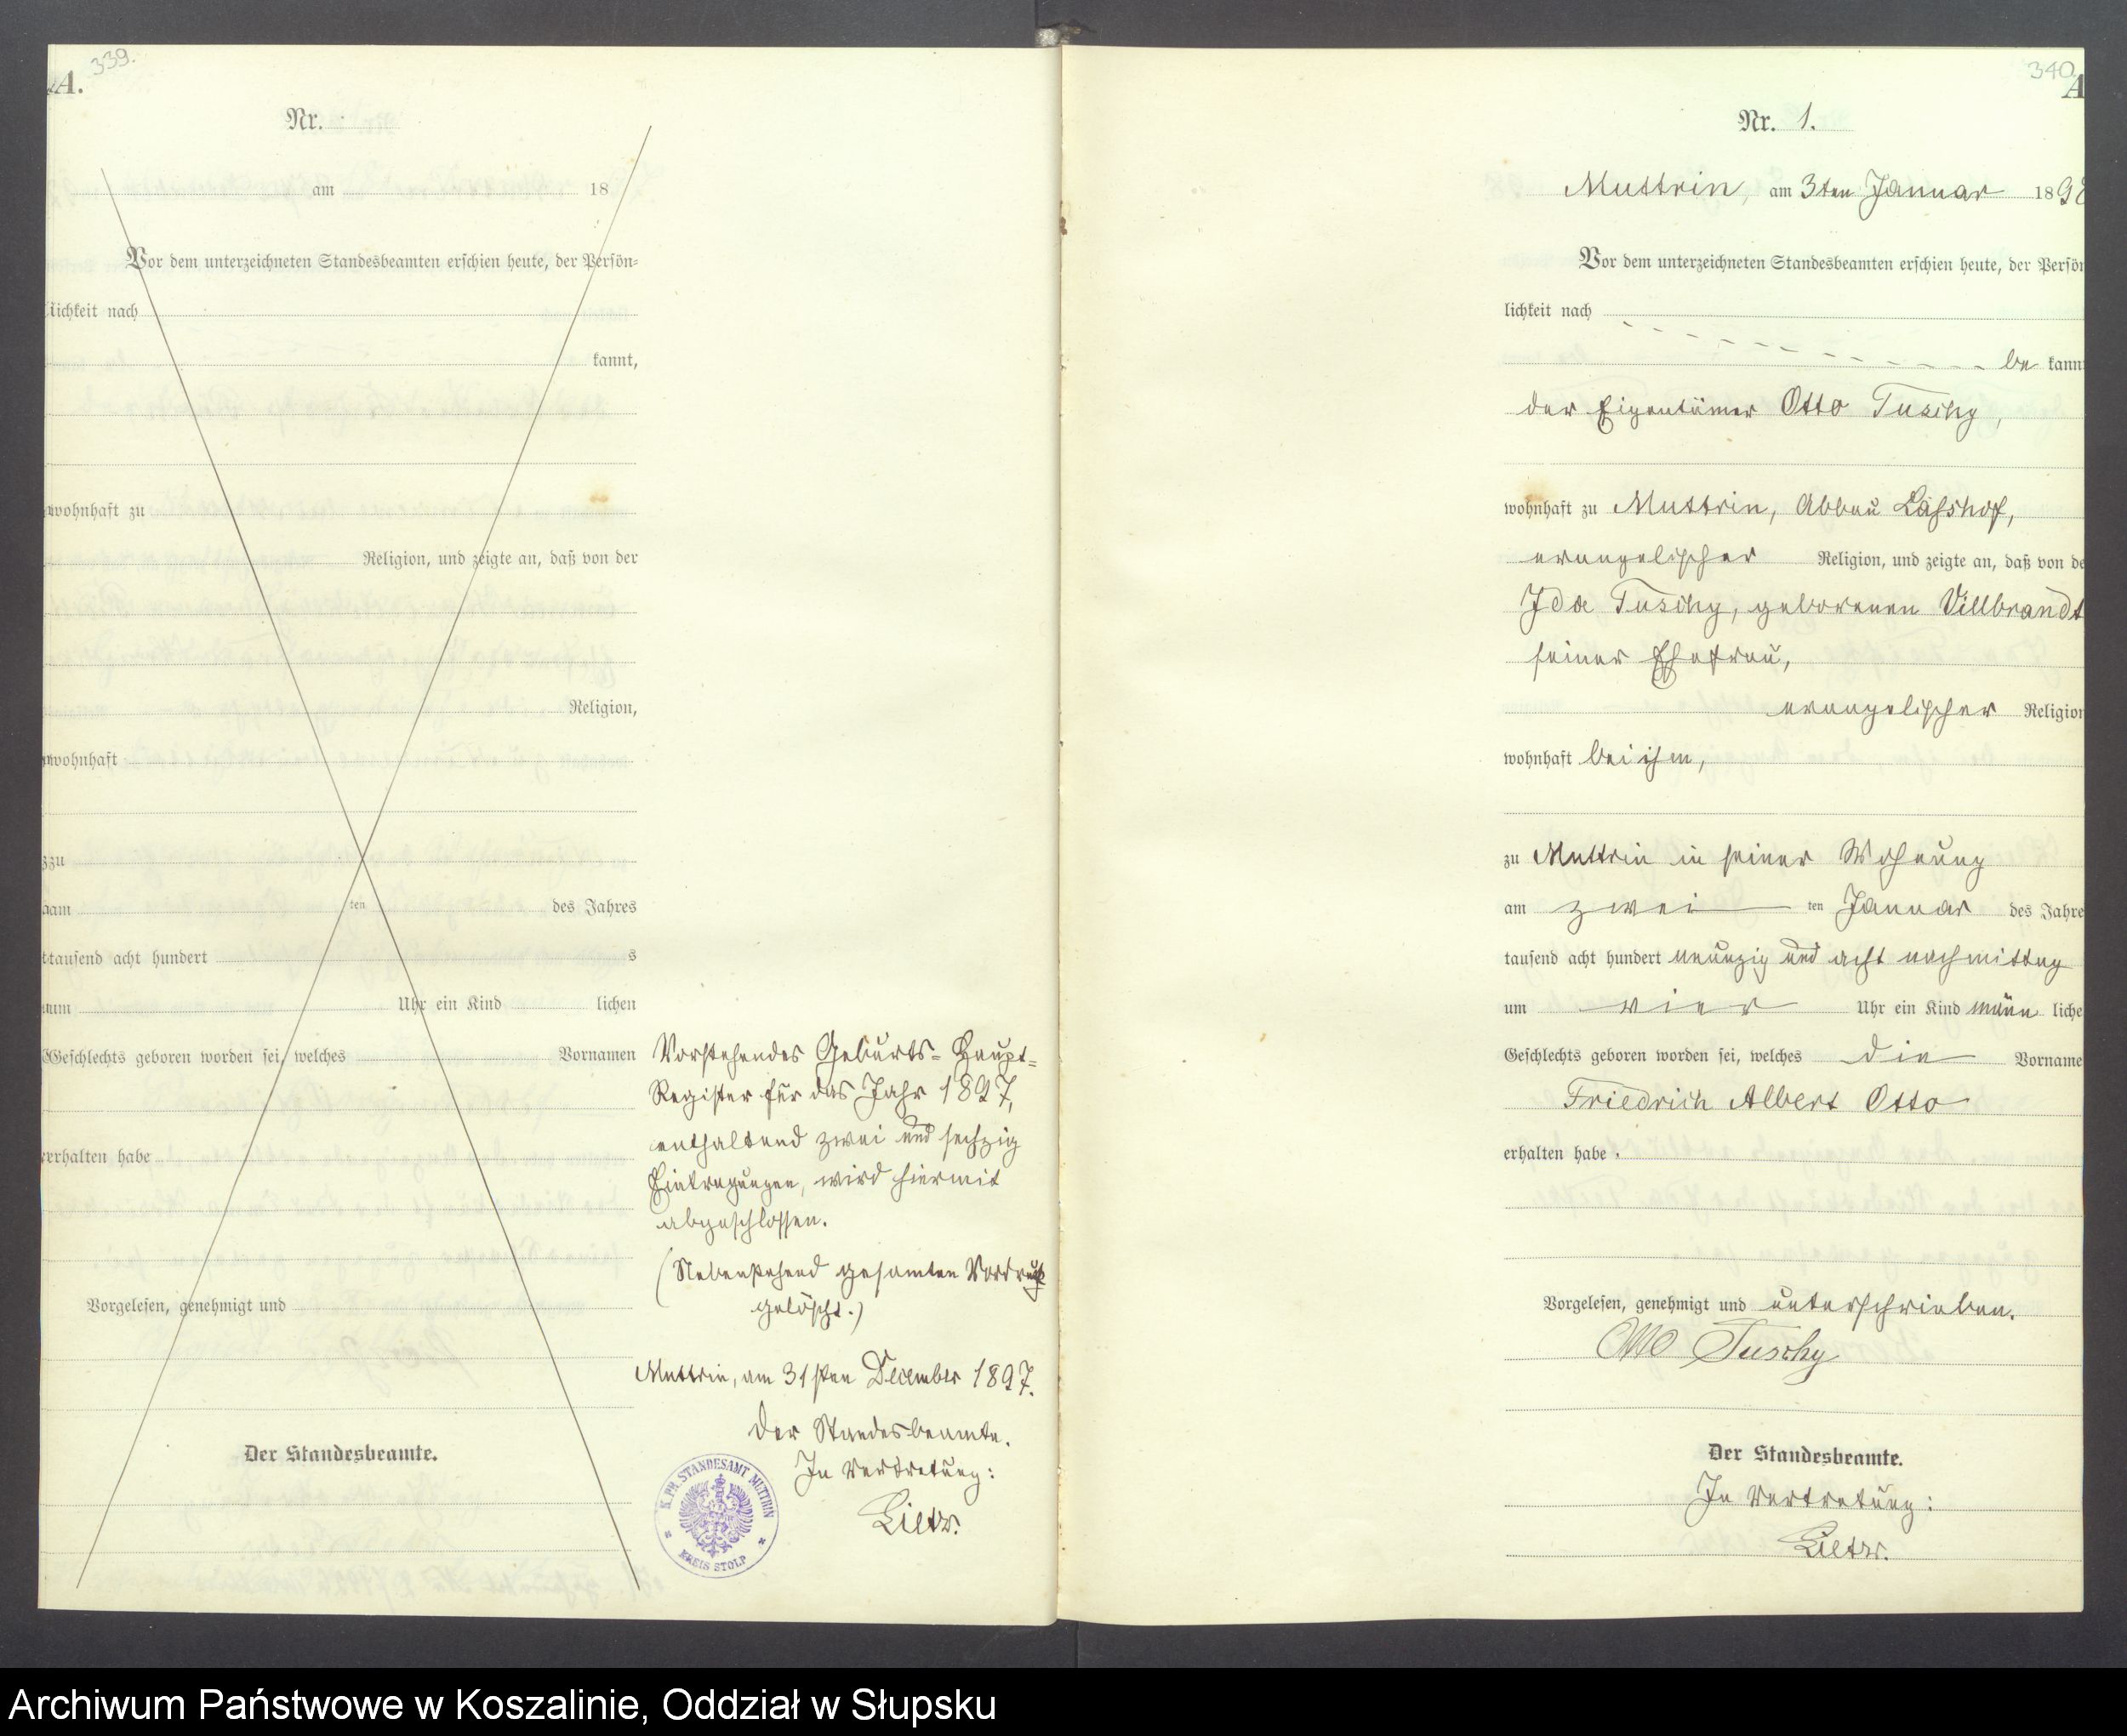 339.
A.
Nr.
am 18
Vor dem unterzeichneten Standesbeamten erschien heute, der Persön-
lichkeit nach
kannt,
wohnhaft zu
Religion, und zeigte an, daß von der
Religion,
wohnhaft
zu
am ten des Jahres
tausend acht hundert s
um Uhr ein Kind lichen
Geschlechts geboren worden sei, welches Vornamen
erhalten habe
Vorgelesen, genehmigt und
Der Standesbeamte.
Vorstehendes Geburts-Haupt-
Register für das Jahr 1897,
enthaltend zwei und sechzig
Eintragungen, wird hiermit
abgeschlossen.
(Nebenstehend gesamten Vordruck
gelöscht.)
Muttrin, am 31sten December 1897.
Der Standesbeamte.
In Vertretung:
Lietz.
K. PR. STANDESAMT MUTTRIN
KREIS STOLP
340
A
Nr. 1.
Muttrin, am 3ten Januar 1898
Vor dem unterzeichneten Standesbeamten erschien heute, der Persön
lichkeit nach
be kann
der Eigentümer Otto Tuschy,
wohnhaft zu Muttrin, Abbau
evangelischer Religion, und zeigte an, daß von de
Ida Tuschy, geborenen Villbrandt
seiner Ehefrau,
evangelischer Religion
wohnhaft bei ihm,
zu Muttrin in seiner Wohnung
am zwei ten Januar des Jahre
tausend acht hundert neunzig und acht nachmittag
um vier Uhr ein Kind männ liche
Geschlechts geboren worden sei, welches die Vorname
Friedrich Albert Otto
erhalten habe.
Vorgelesen, genehmigt und unterschrieben.
Otto Tuschy
Der Standesbeamte.
In Vertretung:
Lietz.
Archiwum Państwowe w Koszalinie, Oddział w Słupsku